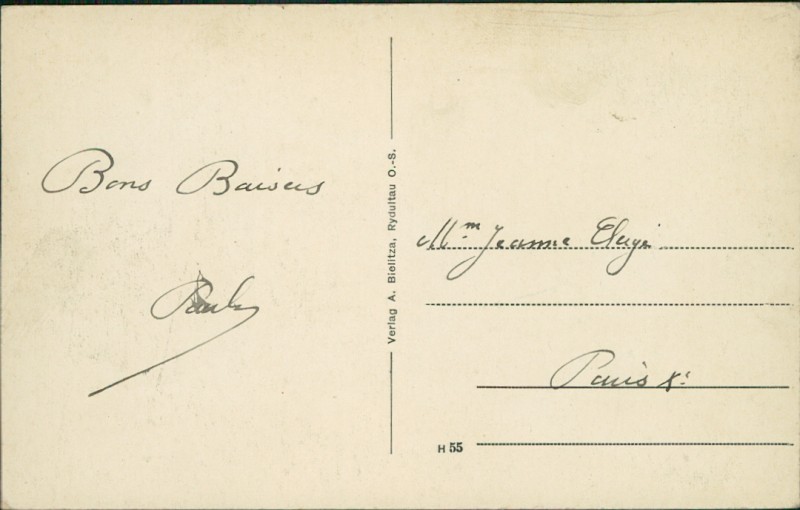 Bons Baisers
Paul
Verlag A. Bielitza, Rydultau O.-S.
Mm Jeanne
Paris Xe
H 55